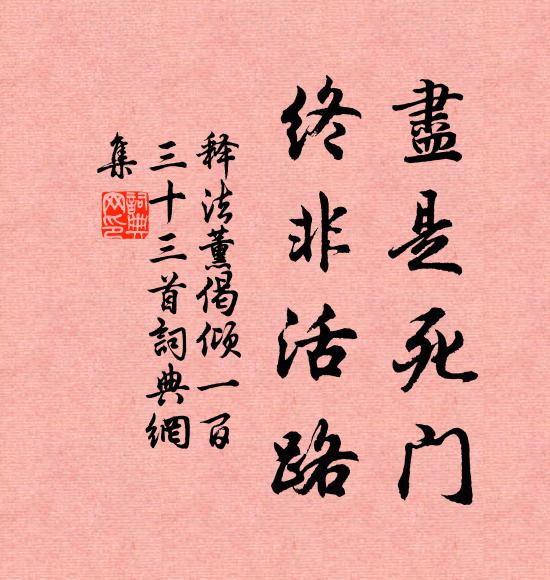 盡是死门
终非活路
释法薰偈倾一百
三十三首詞典網
集
詞典
网印